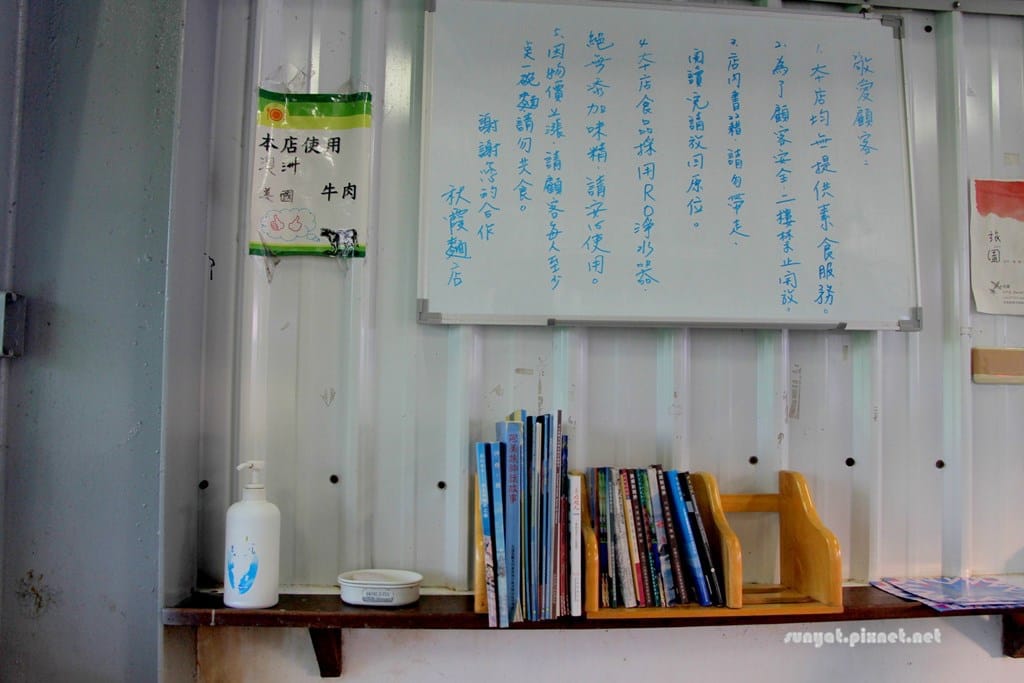 敬愛顧客:
1. 本店均無提供素食服務。
2. 為了顧客安全二樓禁止開放。
3. 店內書籍請勿帶走、
閱讀完請放回原位。
4. 本店食品採用RO淨水器.
絕無添加味精請安心使用。
5. 因物價上漲.請顧客每人至少
桌一碗麵請勿共食。
謝謝您的合作
秋霞麵店
本店使用
澳洲
美國
牛肉
旅園
sunyat.pixnet.net